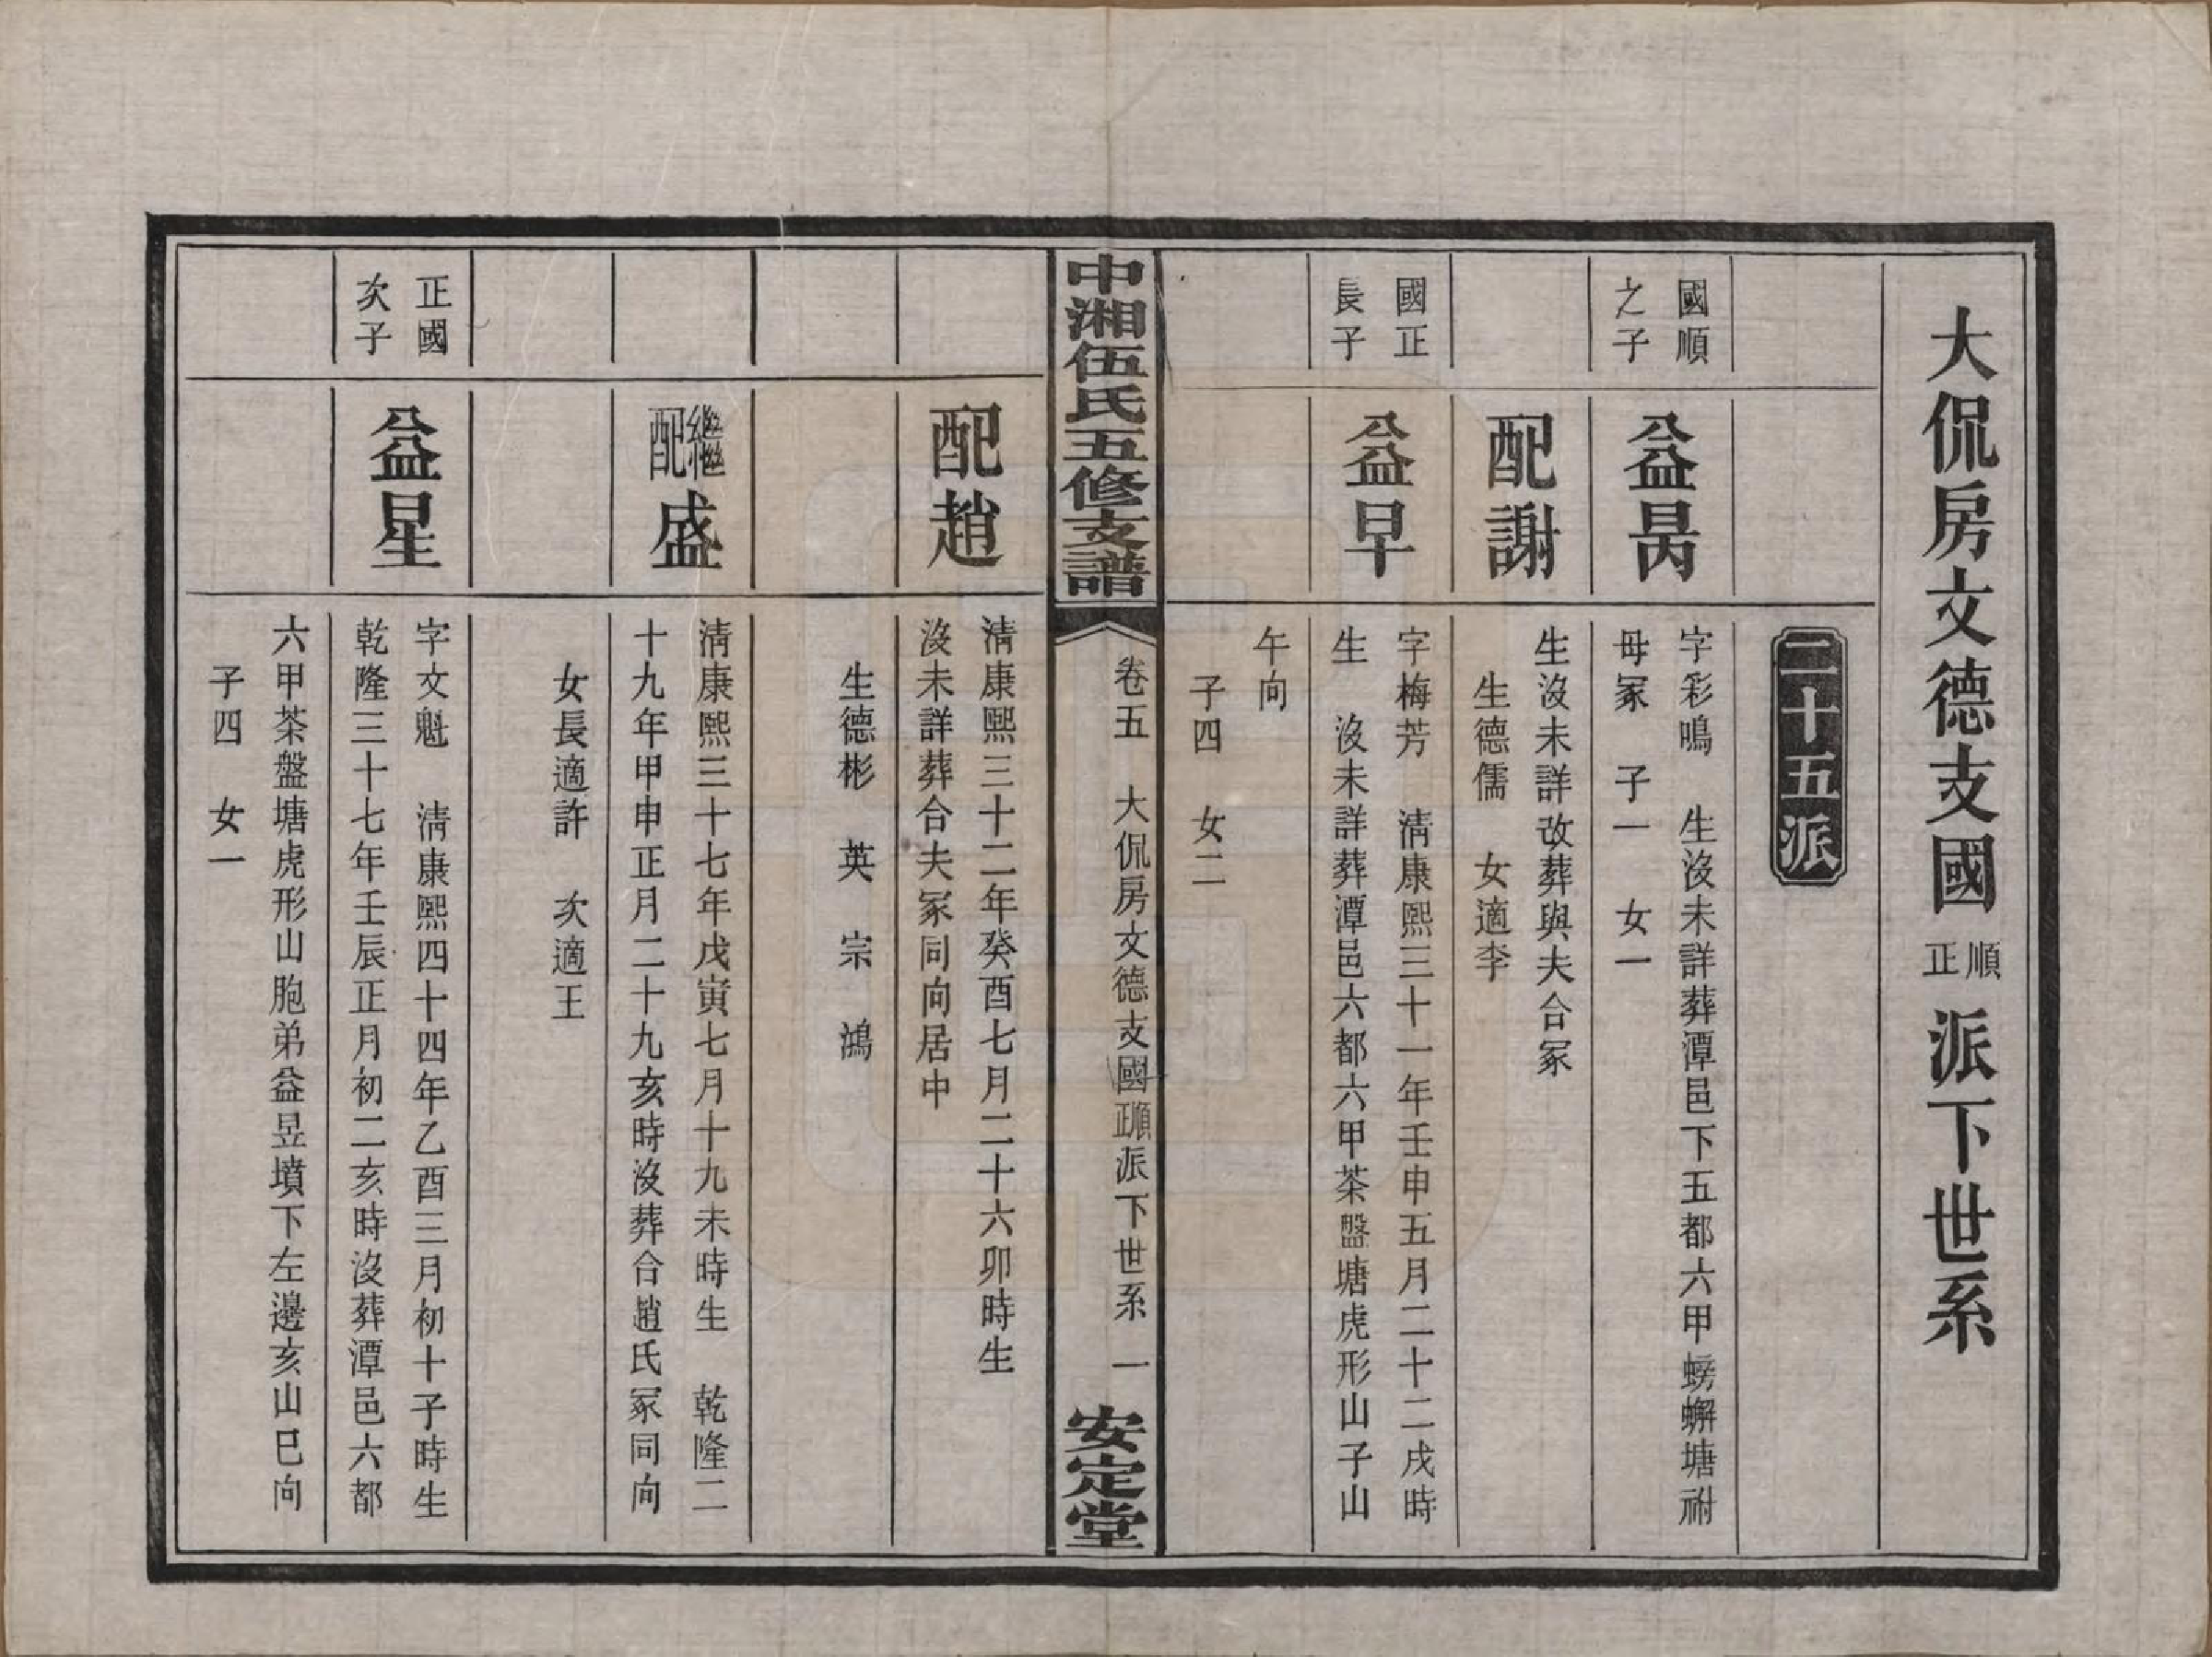 大侃房文德支國順正派下世系
二十五派
國順
之子
益昺
字彩鳴　生沒未詳葬潭邑下五都六甲螃蠏塘祔
母冢　子一　女一
配謝
生沒未詳改葬與夫合冢
生德儒　女適李
國正
長子
益早
字梅芳　淸康熙三十一年壬申五月二十二戌時
生　沒未詳葬潭邑六都六甲茶盤塘虎形山子山
午向
子四　女二
中湘伍氏五修支譜
卷五　大侃房文德支國順正派下世系　一
安定堂
配趙
淸康熙三十二年癸酉七月二十六卯時生
沒未詳葬合夫冢同向居中
生德彬　英　宗　鴻
繼配盛
淸康熙三十七年戊寅七月十九未時生　乾隆二
十九年甲申正月二十九亥時沒葬合趙氏冢同向
女長適許　次適王
正國
次子
益星
字文魁　淸康熙四十四年乙酉三月初十子時生
乾隆三十七年壬辰正月初二亥時沒葬潭邑六都
六甲茶盤塘虎形山胞弟益昱墳下左邊亥山巳向
子四　女一